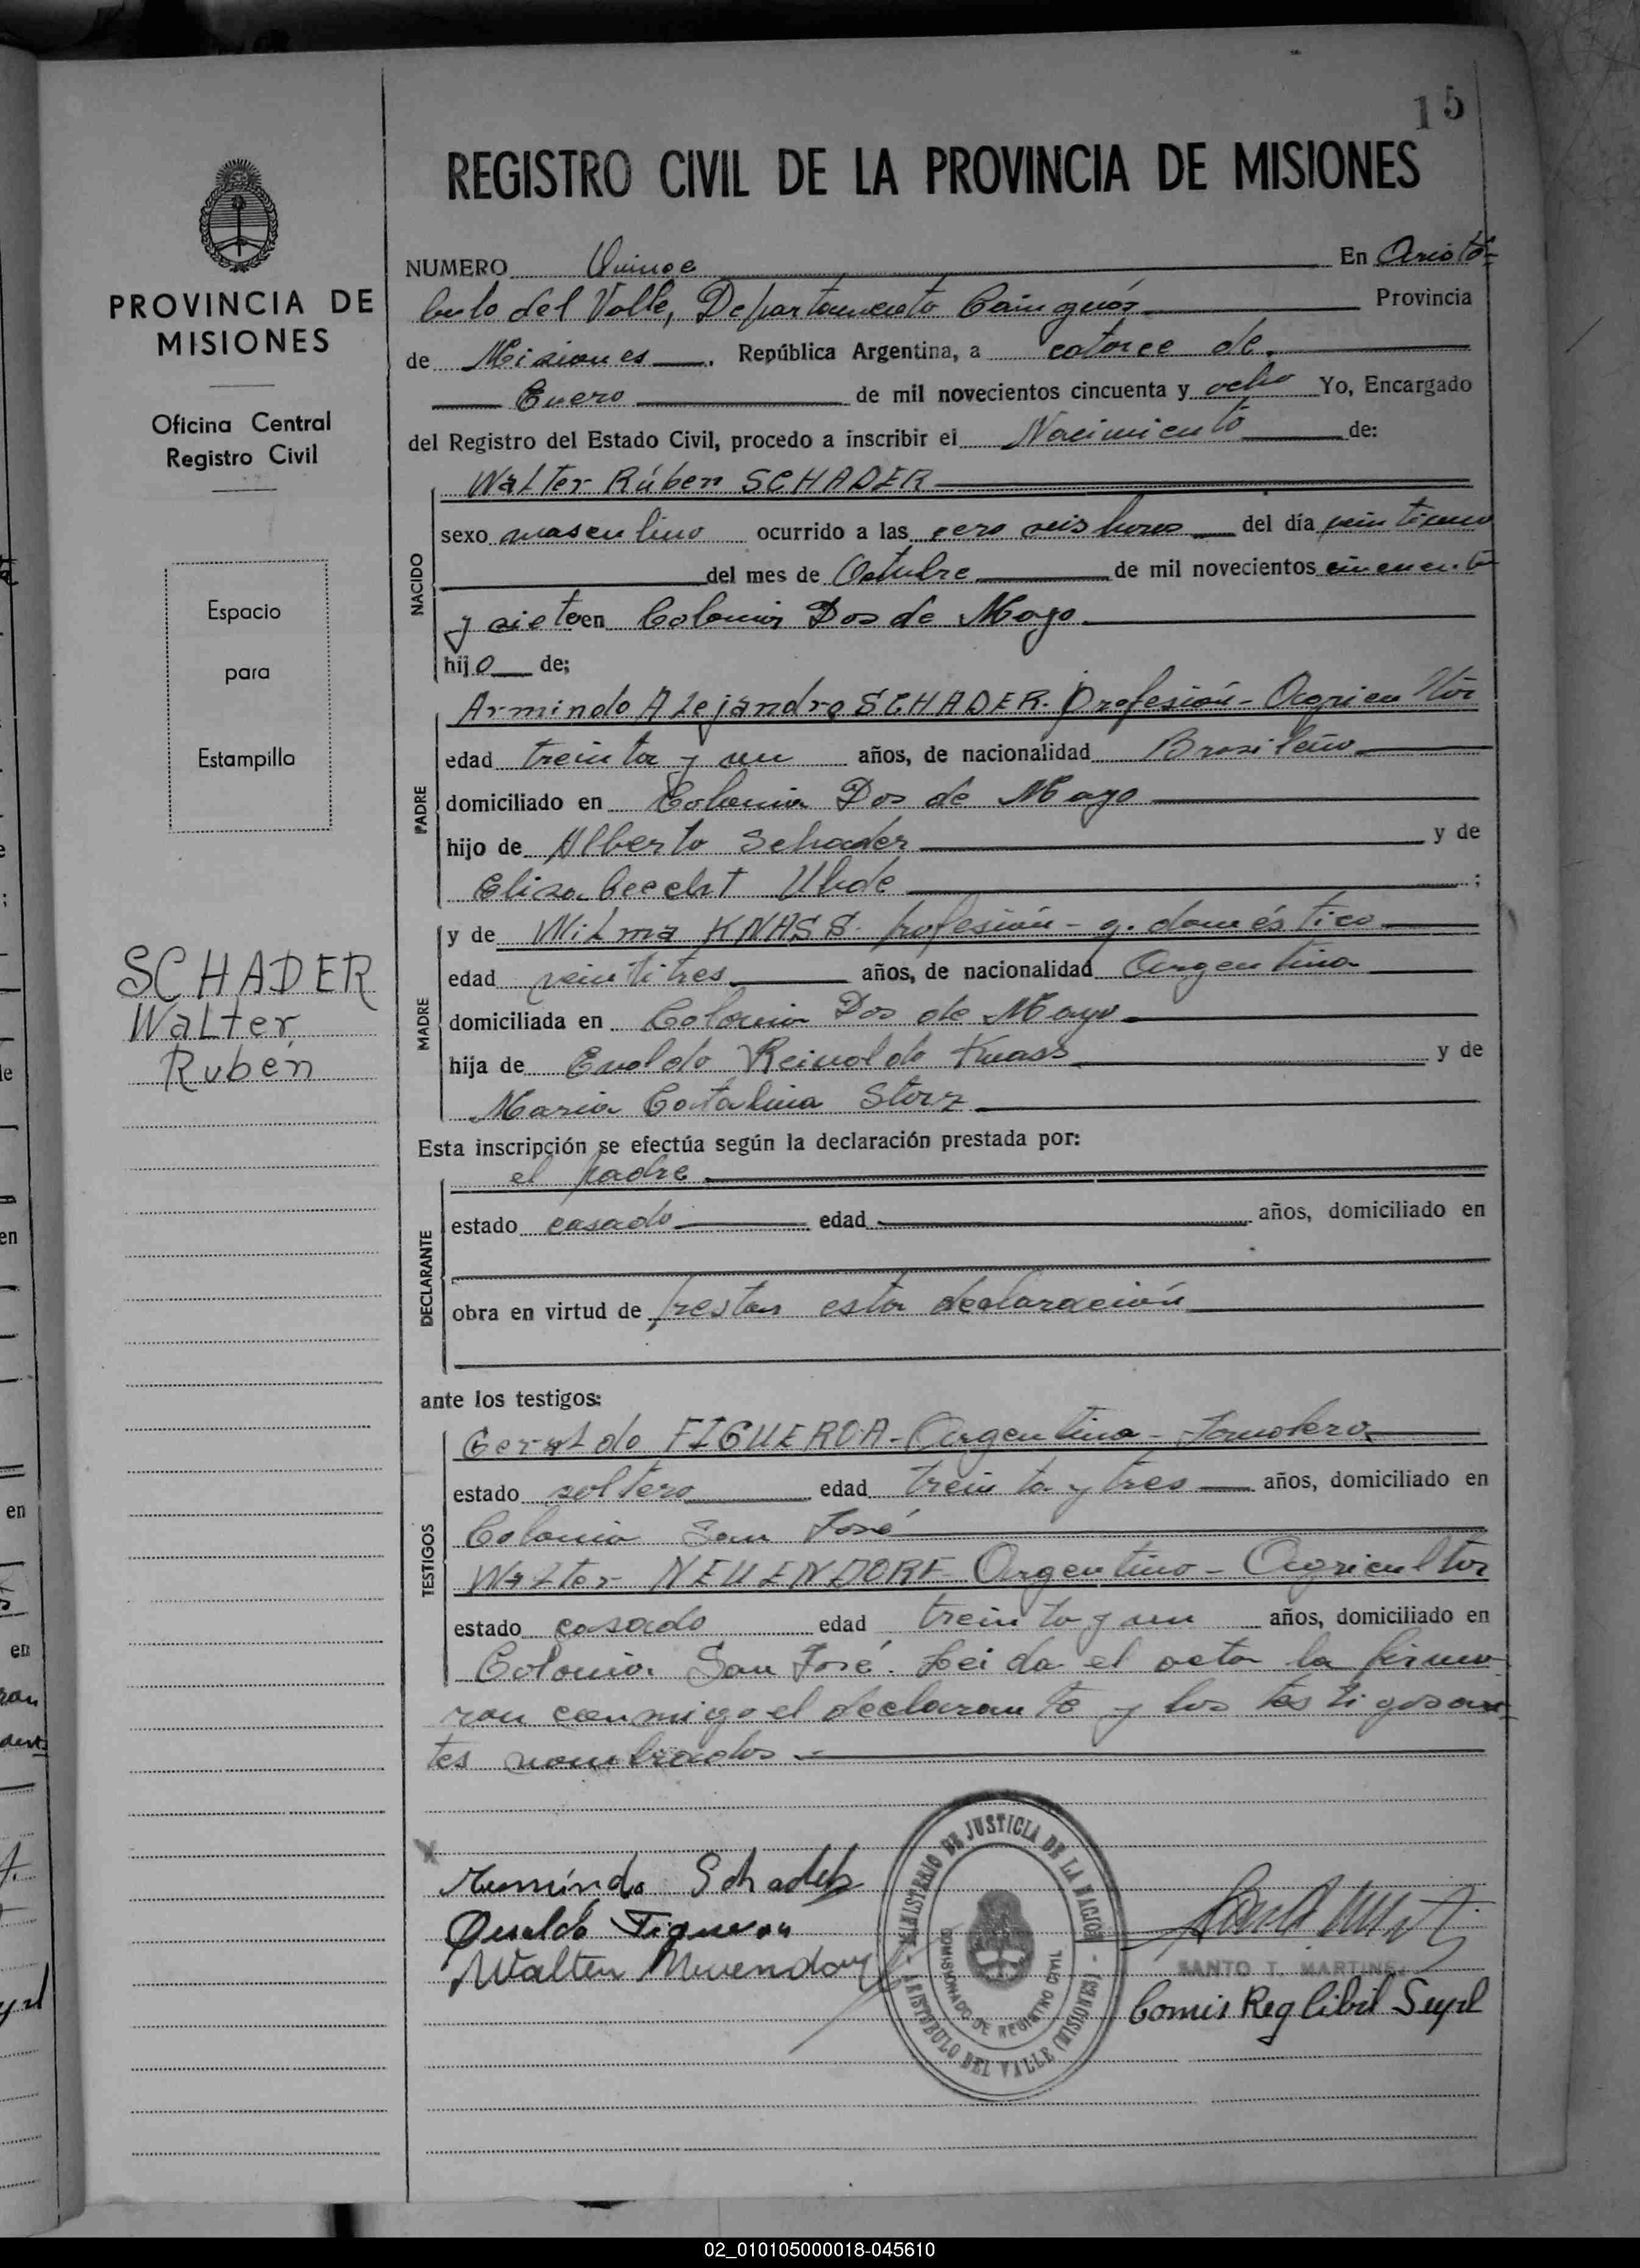 15
REGISTRO CIVIL DE LA PROVINCIA DE MISIONES
PROVINCIA DE
MISIONES
Oficina Central
Registro Civil
Espacio
para
Estampilla
SCHADER
Walter
Rubén
NUMERO Quince En Aristó-
bulo del Valle, Departamento Cainguás Provincia
de Misiones . República Argentina, a catorce de
Enero de mil novecientos cincuenta y ocho Yo, Encargado
del Registro del Estado Civil, procedo a inscribir el Nacimiento de:
NACIDO
Walter Rúben SCHADER
sexo masculino ocurrido a las cero seis horas del día veintiuno
del mes de Octubre de mil novecientos cincuenta
y siete en Colonia Dos de Mayo
hijo de;
PADRE
Armindo Alejandro SCHADER. Profesión - Agricultor
edad treinta y un años, de nacionalidad Brasileño
domiciliado en Colonia Dos de Mayo
hijo de Alberto Schader y de
Uhde ;
MADRE
y de Wilma KNASS. profesión - q. doméstico
edad veintitres años, de nacionalidad Argentina
domiciliada en Colonia Dos de Mayo
hija de Reinoldo Knass y de
Maria Catalina Storz
Esta inscripción se efectúa según la declaración prestada por:
DECLARANTE
el padre
estado casado edad años, domiciliado en
obra en virtud de prestar esta declaración
ante los testigos:
TESTIGOS
Geraldo FIGUEROA - Argentino - Jornalero
estado soltero edad treinta y tres años, domiciliado en
Colonia San José
Walter NEUENDORF Argentino - Agricultor
estado casado edad treinta y un años, domiciliado en
Colonia San José. Leida el acta la firma
ron conmigo el declarante y los testigos an-
tes nombrados
Armindo Schader
Figueroa
Walter Neuendorf
MINISTERIO DE JUSTICIA DE LA NACION
COMISIONADO DE REGISTRO CIVIL
ARISTOBULO DEL VALLE (MISIONES)
SANTO T. MARTINEZ
Comis Reg Cibil Supl
02_010105000018-045610